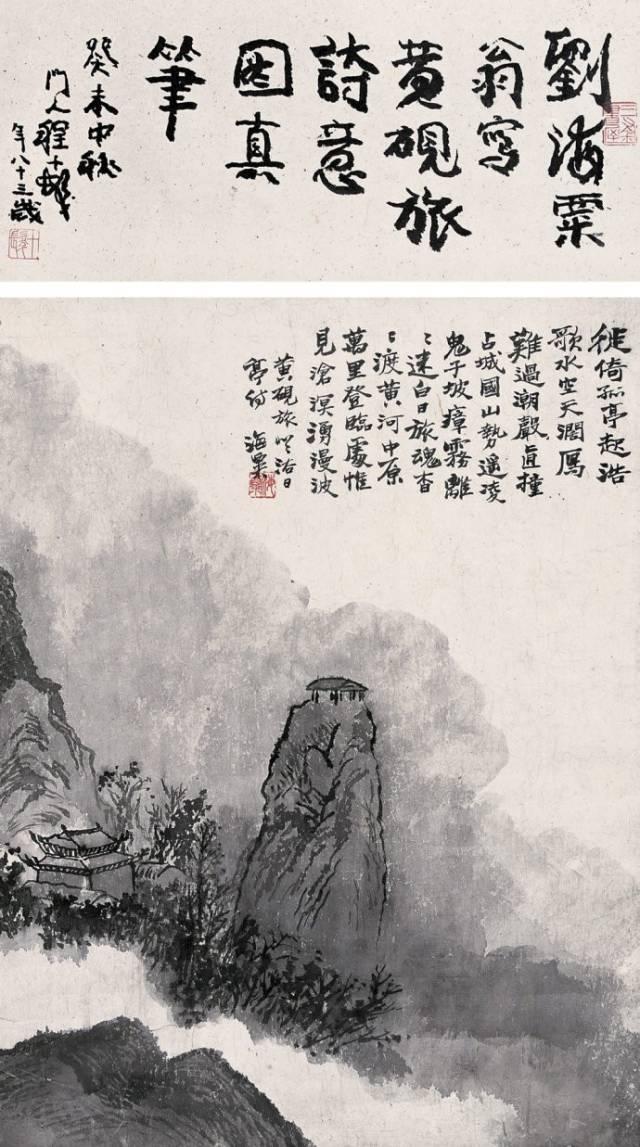 劉海粟
翁寫
黄硯旅
詩意
圖真
筆
癸未中秋
門人程十髮
年八十三歲
徙倚孤亭起浩
歌水空天濶鴈
難過潮聲直撞
占城國山勢遥凌
鬼子坡瘴霧離
〻迷白日旅魂杳
〻渡黄河中原
萬里登臨處惟
見滄溟湧漫波
黄硯旅浴日
亭詩 海粟